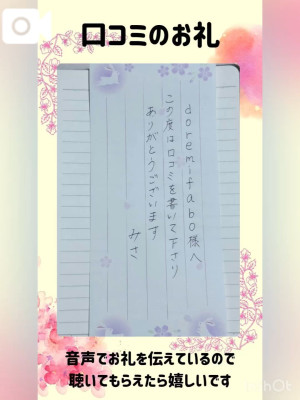 口コミのお礼
doremifabo様へ
この度は口コミを書いて下さり
ありがとうございます
みさ
音声でお礼を伝えているので
聴いてもらえたら嬉しいです